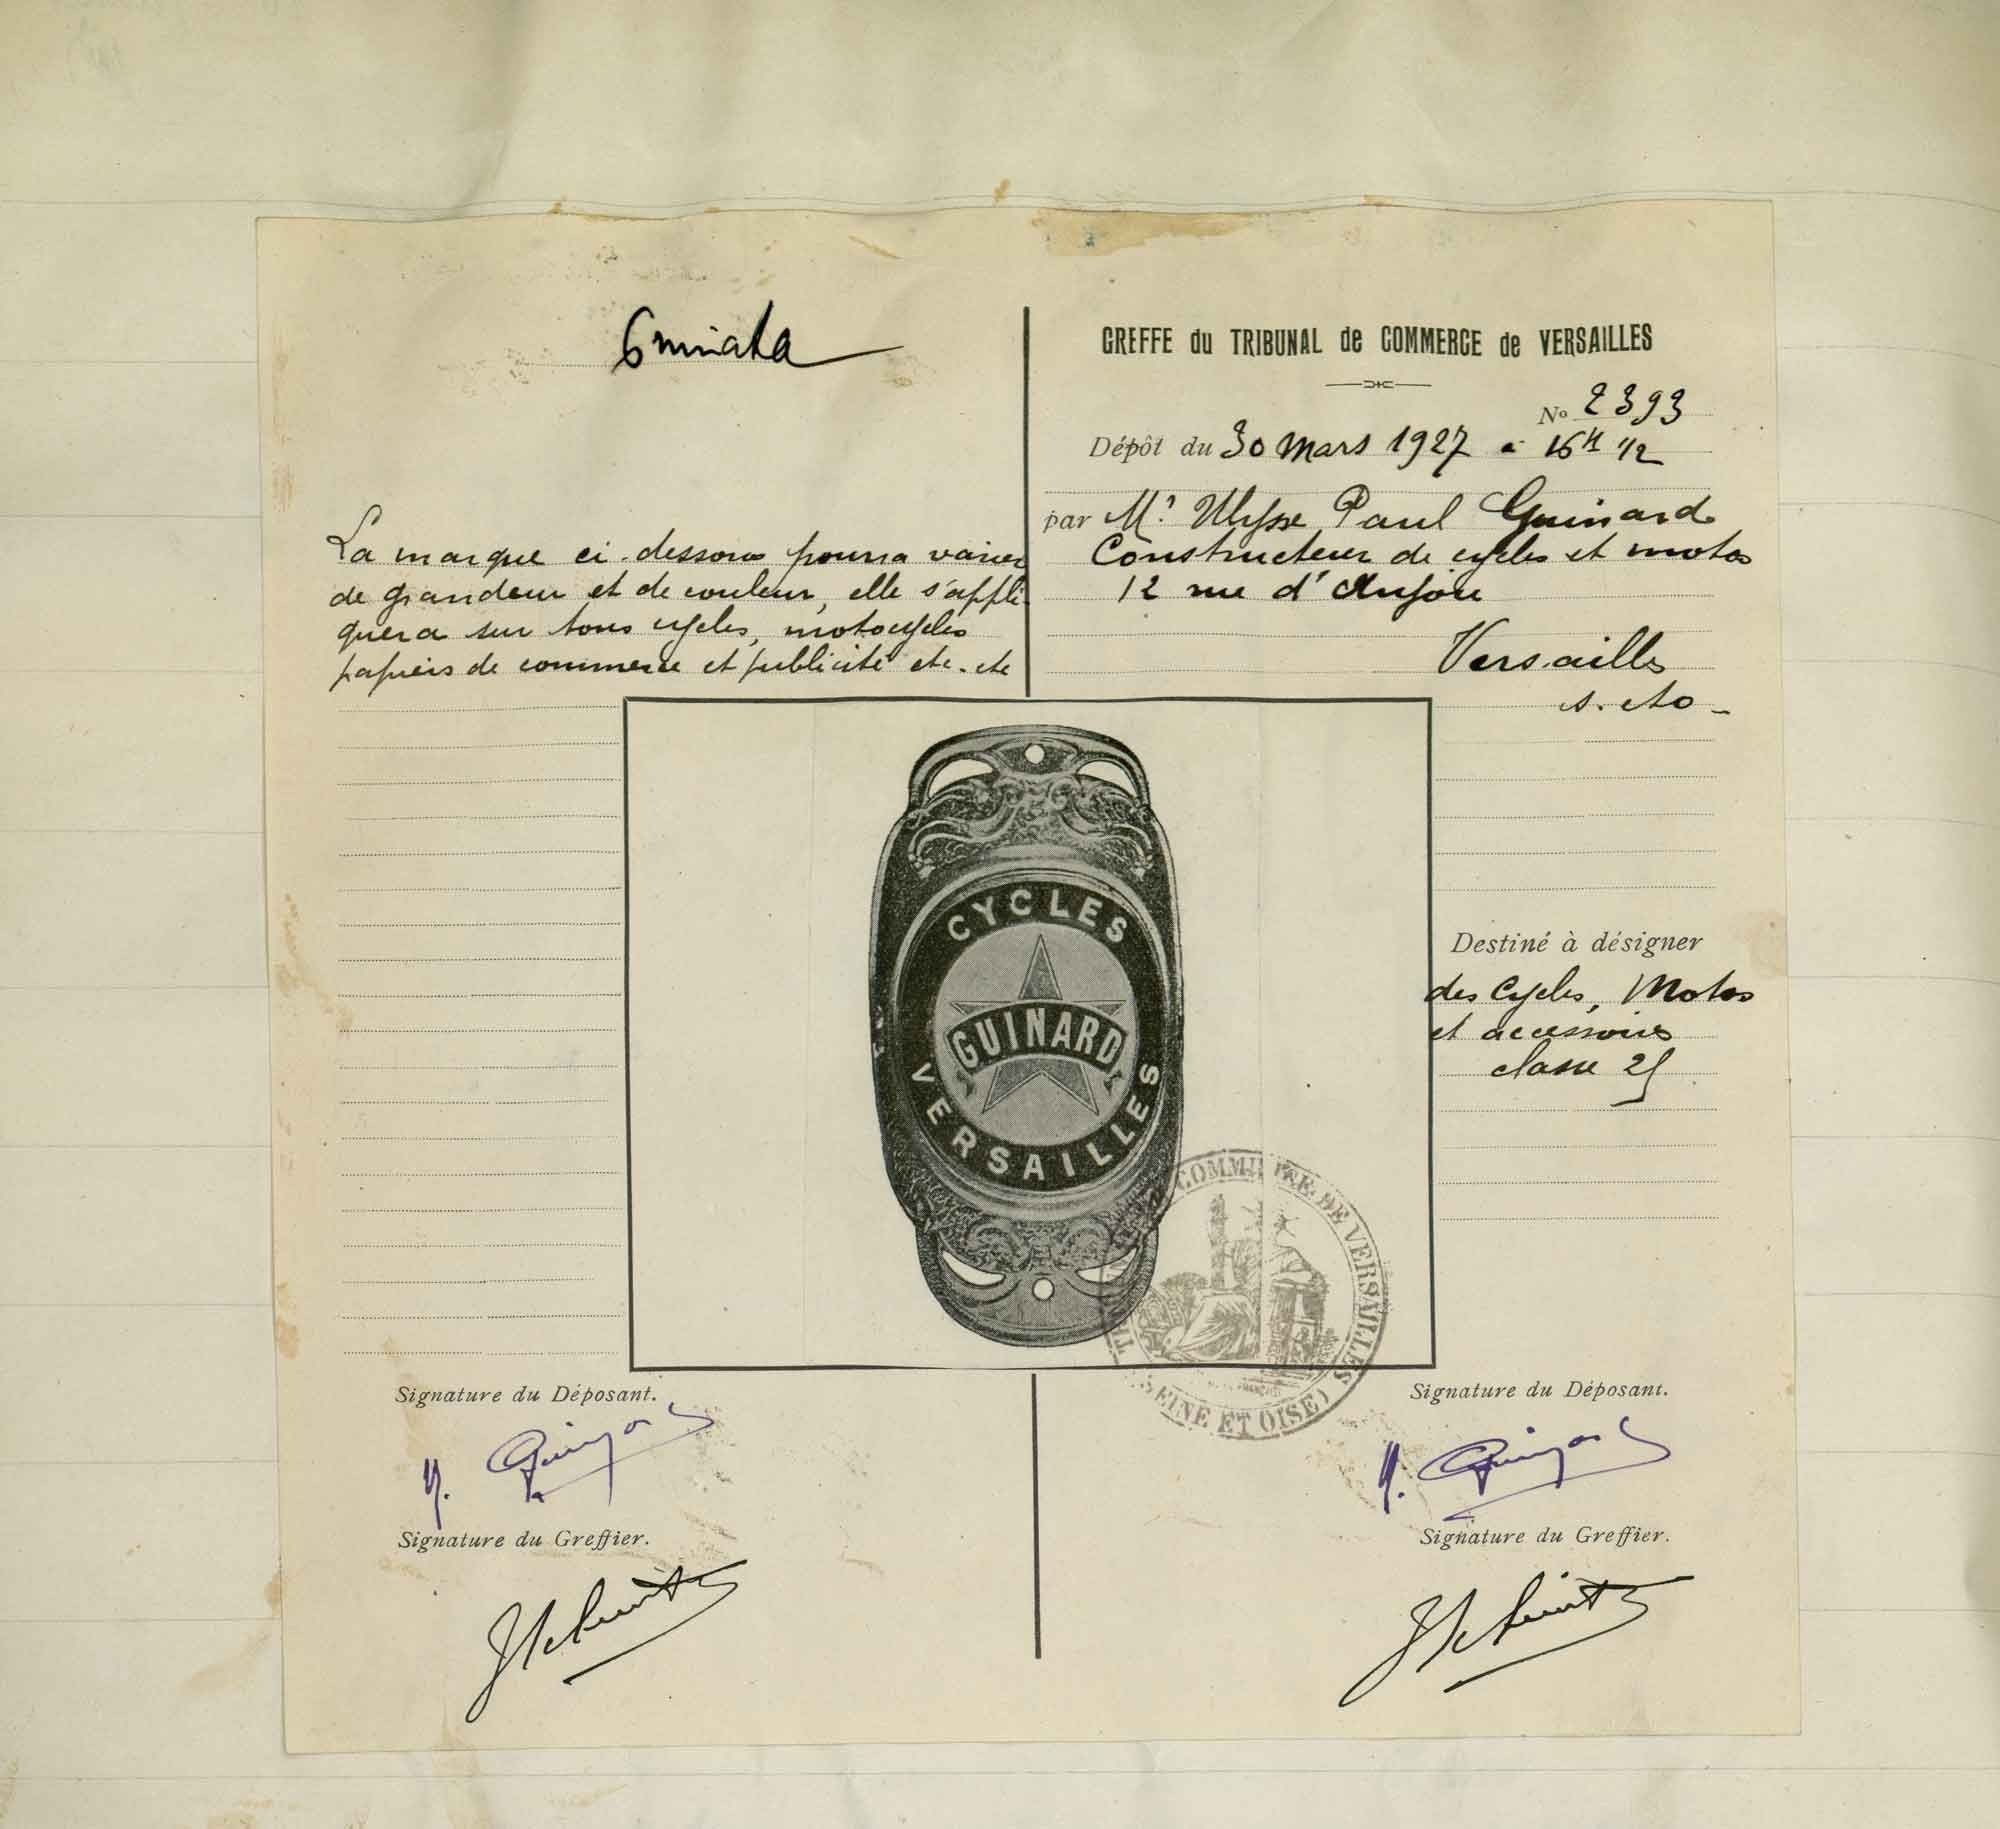 Eminata
La marque ci-dessous pourra varier
de grandeur et de couleur, elle s'appli-
quera sur tous cycles, motocycles
papiers de commerce et publicité etc. etc
GREFFE du TRIBUNAL de COMMERCE de VERSAILLES
N° 2393
Dépôt du 30 Mars 1927 à 16H 1/2
par Mr Ulysse Paul Guinard
Constructeur de cycles et motos
12 rue d'Anjou
Versailles
CYCLES
GUINARD
VERSAILLES
Destiné à désigner
des Cycles, Motos
et accessoires
classe 25
TRIBUNAL DE COMMERCE DE VERSAILLES
(SEINE ET OISE)
Signature du Déposant.
Signature du Greffier.
Signature du Déposant.
Signature du Greffier.